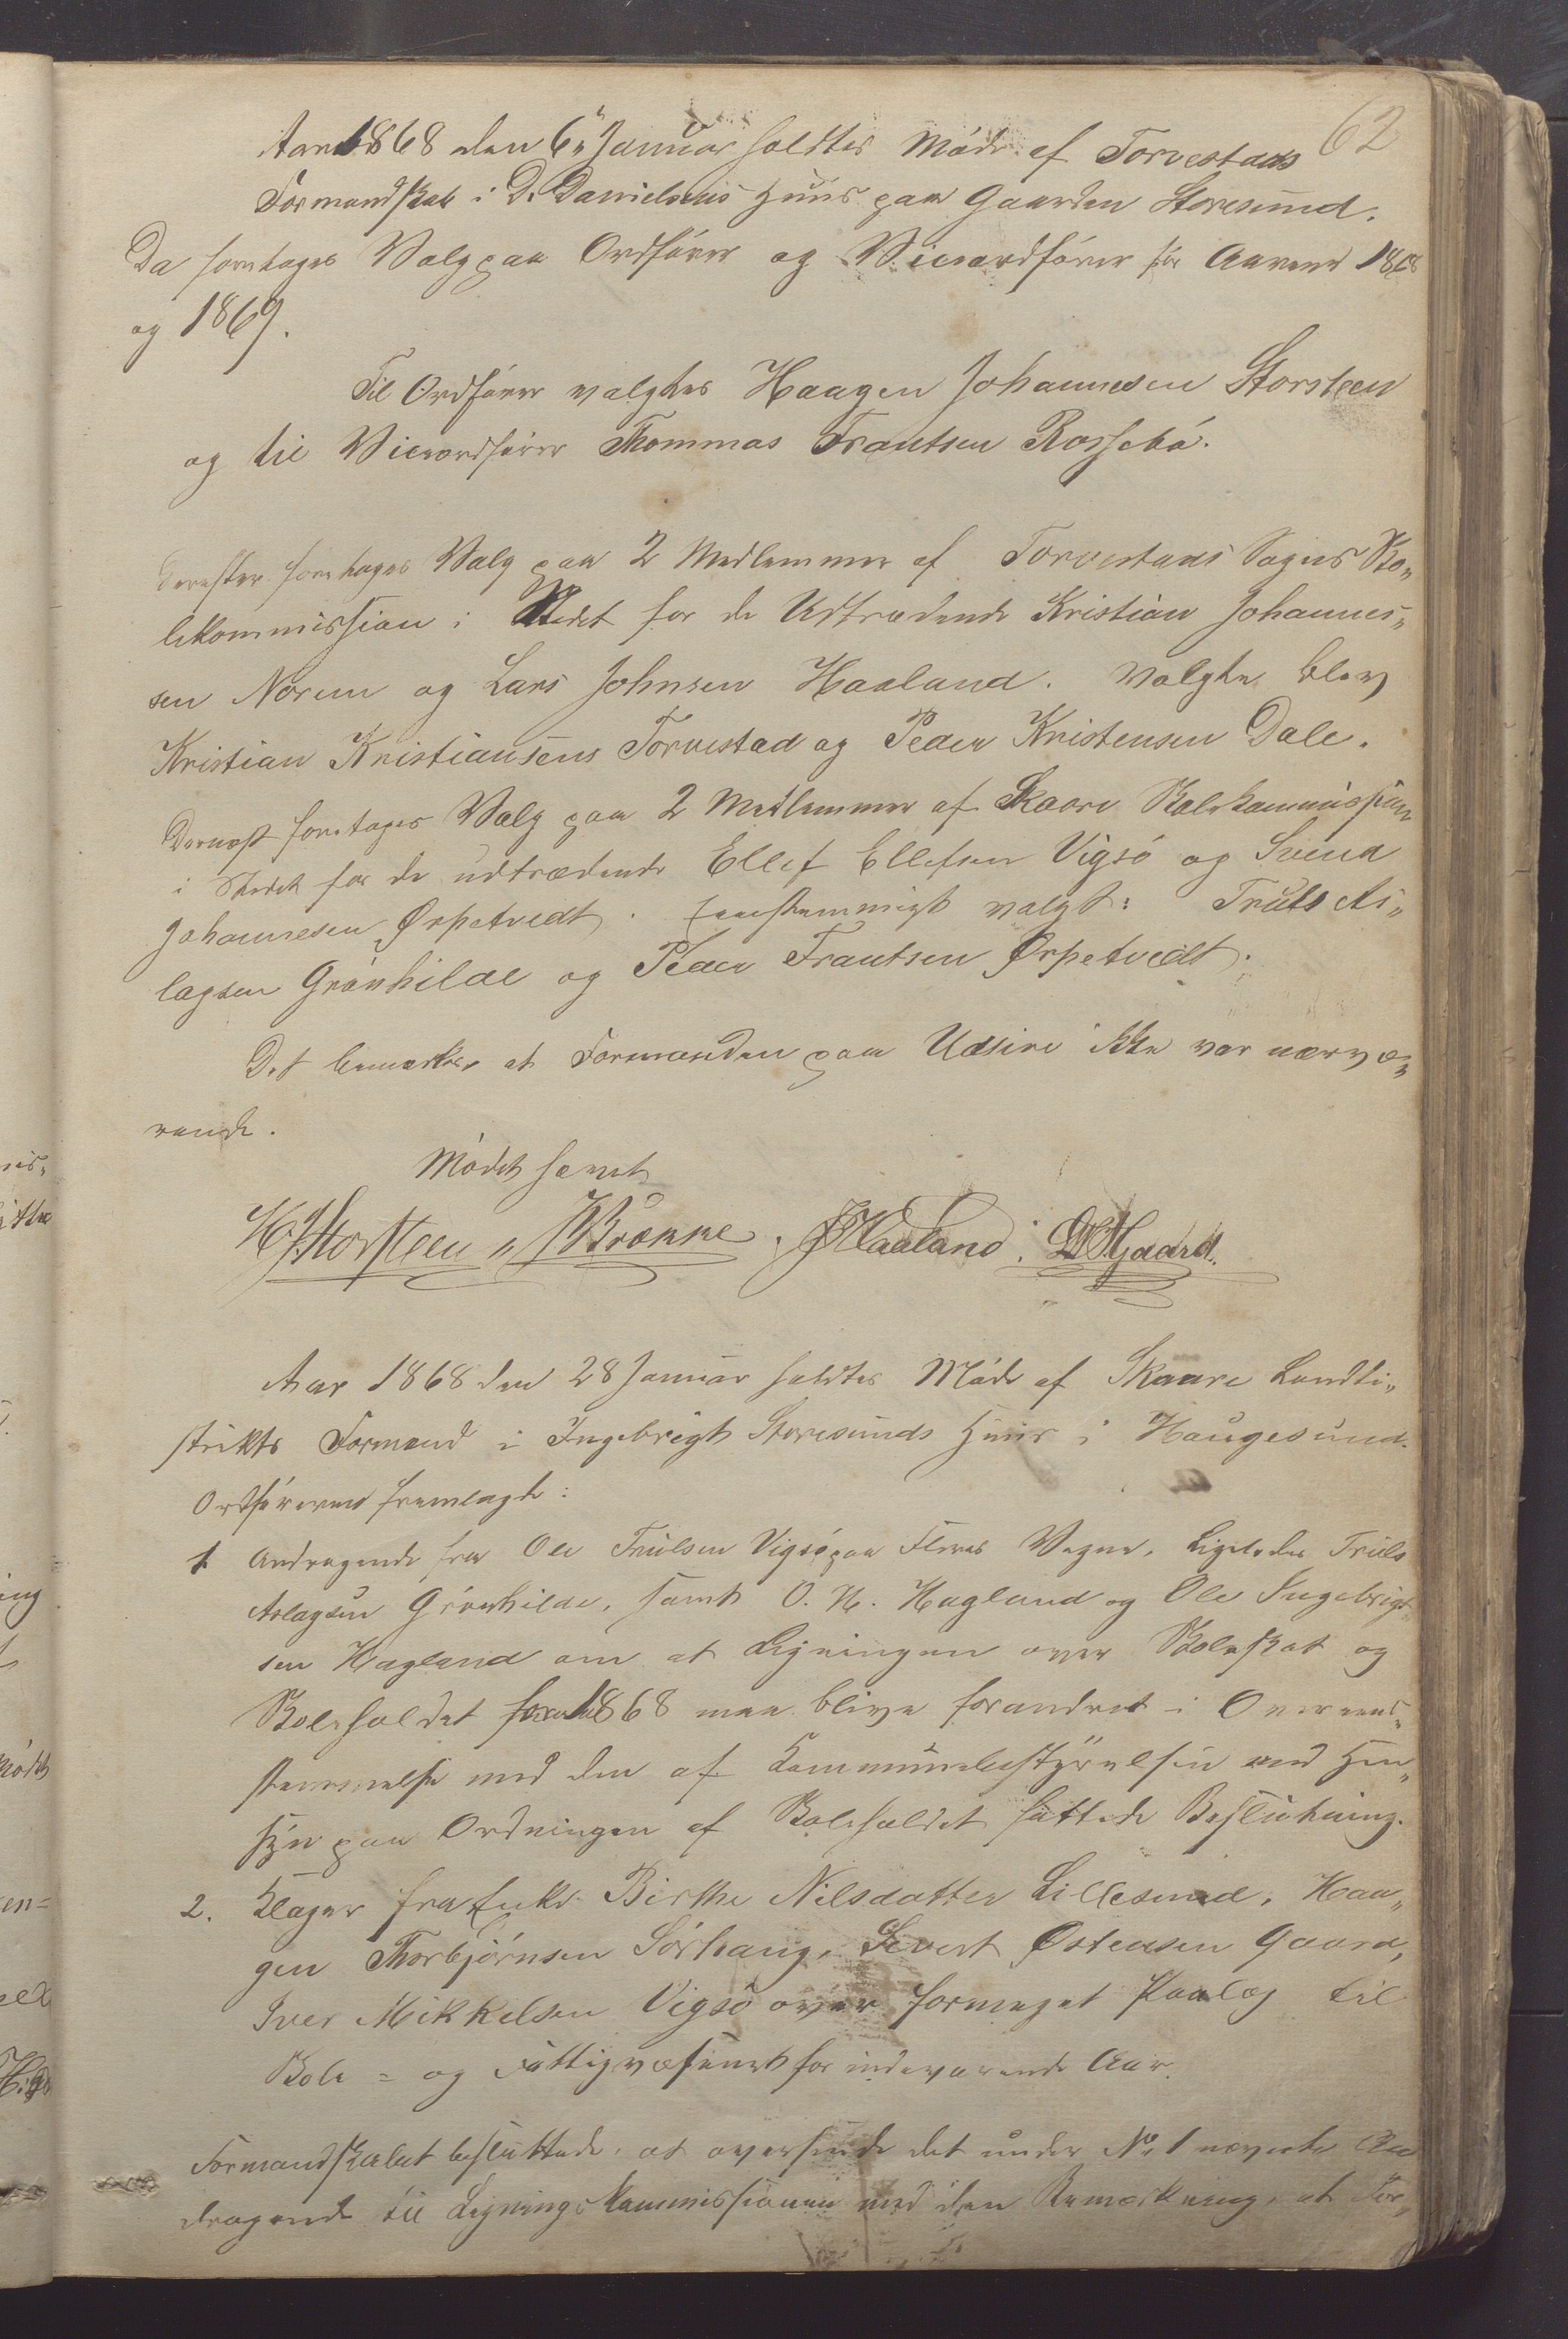 62
Aar 1868 den 6" Januar holdtes Møde af Torvestads
Formandskab i D. Danielsens Huus paa Gaarden Storesund.
Da foretages Valg paa Ordfører og Viceordfører for Aarene 1868
og 1869.
Til Ordfører valgtes Haagen Johannesen Storsteen
og til Viceordfører Thommas Frantsen Rossebø.
Derefter foretages Valg paa 2 Medlemmer af Torvestads Sogns Sko„
lekommission i Stedet for de Udtrædende Kristian Johannes„
sen Norem og Lars Johnsen Haaland. Valgte blev
Kristian Kristiansens Torvestad og Peder Kristensen Dale.
Dernæst foretages Valg paa 2 Medlemmer af Skaare Skolekommission
i Stedet for de udtrædende Ellef Ellefsen Vigsø og Svend
Johannesen Ørpetvedt. Eenstemmigt valgt: Truls As„
lagsen Grønhilde og Peder Frantsen Ørpetvedt.
Det bemærkes at Formanden paa Udsire ikke var nærvæ„
rende.
Mødet hævet
H. J. Storsteen „ J Brønne. J Haaland. L H Gaard.
Aar 1868 den 28 Januar holdtes Møde af Skaare Landdi„
strikts Formænd i Ingebrigt Storesunds Huus i Haugesund.
Ordføreren fremlagde:
1 Andragende fra Ole Trulsen Vigsø paa Fleres Vegne, Ligeledes Truls
Aslagsen Grønhilde, samt O. N. Hagland og Ole Ingebrigt
sen Hagland om at Ligningen over Skoleskat og
Skoleholdet for 1868 maa blive forandret i Overeens„
stemmelse med den af Kommunebestyrelsen med Hen„
syn paa Ordningen af Skoleholdet fattede Beslutning.
2. Klager fra Enke Birthe Nilsdatter Lillesund, Haa„
gen Thorbjørnsen Sørhaug, Severt Østensen Gaard,
Iver Mikkelsen Vigsø over formeget Paalæg til
Skole= og Fattigvæsenet for indeværende Aar.
Formandskabet besluttede, at oversende det under No 1 nævnte An
dragende til Ligningskommissionen med den Bemærkning, at For„